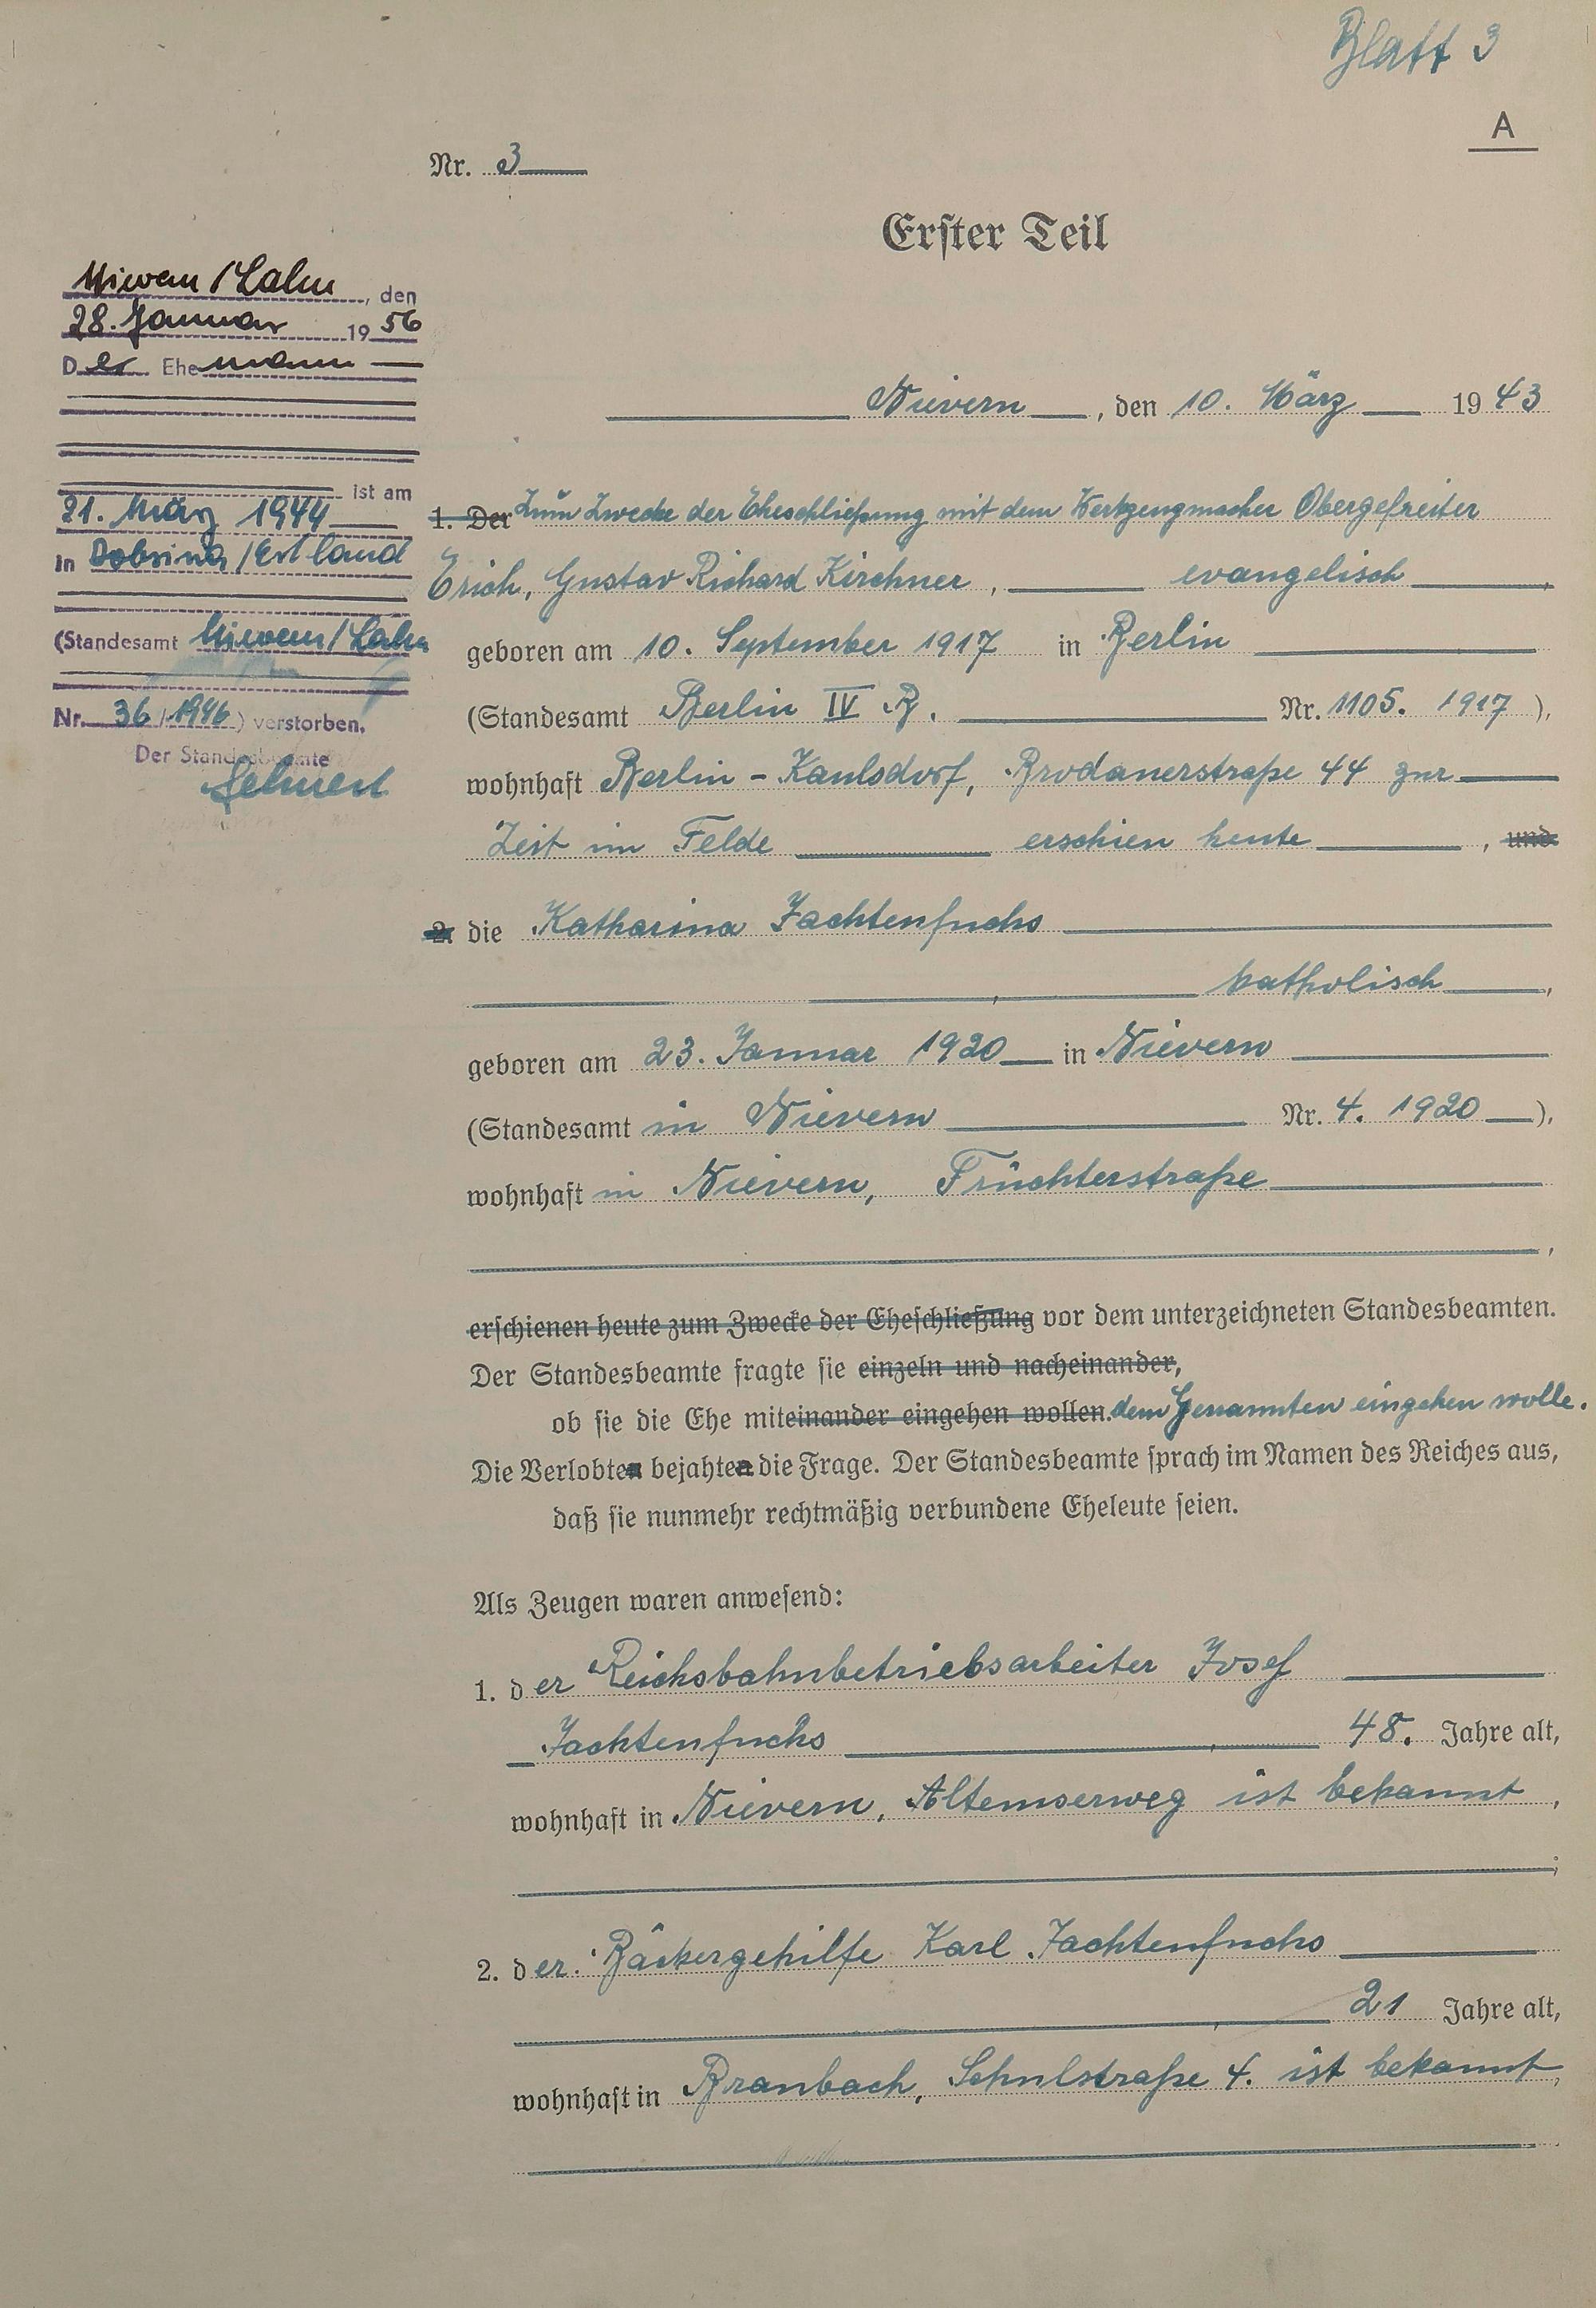 Blatt 3
A
Nr. 3
Erster Teil
Nievern/Lahn, den
28. Januar 1956
Der Ehemann
ist am
21. März 1944
in /Estland
(Standesamt Nievern/Lahn
Nr. 36/1946) verstorben.
Der Standesbeamte
Nievern, den 10. März 1943
1. Der Zum Zwecke der Eheschließung mit dem Werkzeugmacher Obergefreiter
Erich, Gustav Richard Kirchner, evangelisch,
geboren am 10. September 1917 in Berlin
(Standesamt Berlin IV B. Nr. 1105. 1917),
wohnhaft Berlin-Kaulsdorf, 44 zur
Zeit im Felde erschien heute, und
2. die Katharina Fachtenfuchs
, katholisch,
geboren am 23. Januar 1920 in Nievern
(Standesamt in Nievern Nr. 4. 1920),
wohnhaft in Nievern, Früchterstraße
,
erschienen heute zum Zwecke der Eheschließung vor dem unterzeichneten Standesbeamten.
Der Standesbeamte fragte sie einzeln und nacheinander,
ob sie die Ehe miteinander eingehen wollen. dem Genannten eingehen wolle.
Die Verlobten bejahten die Frage. Der Standesbeamte sprach im Namen des Reiches aus,
daß sie nunmehr rechtmäßig verbundene Eheleute seien.
Als Zeugen waren anwesend:
1. der Reichsbahnbetriebsarbeiter Josef
Fachtenfuchs, 48. Jahre alt,
wohnhaft in Nievern, Altemserweg ist bekannt,
;
2. der Bäckergehilfe Karl Fachtenfuchs
, 21 Jahre alt,
wohnhaft in Braubach, Schulstraße 4. ist bekannt,